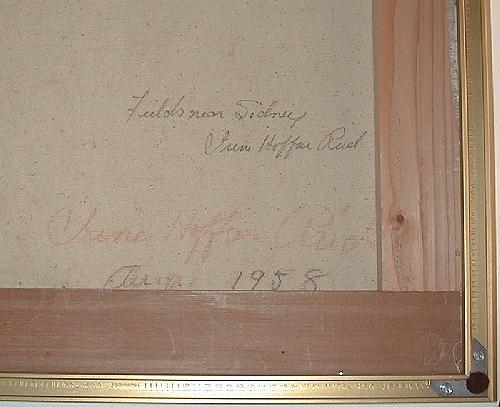 Fields near Sidney
Irene Hoffar Reid
Irene Hoffar Reid
1958